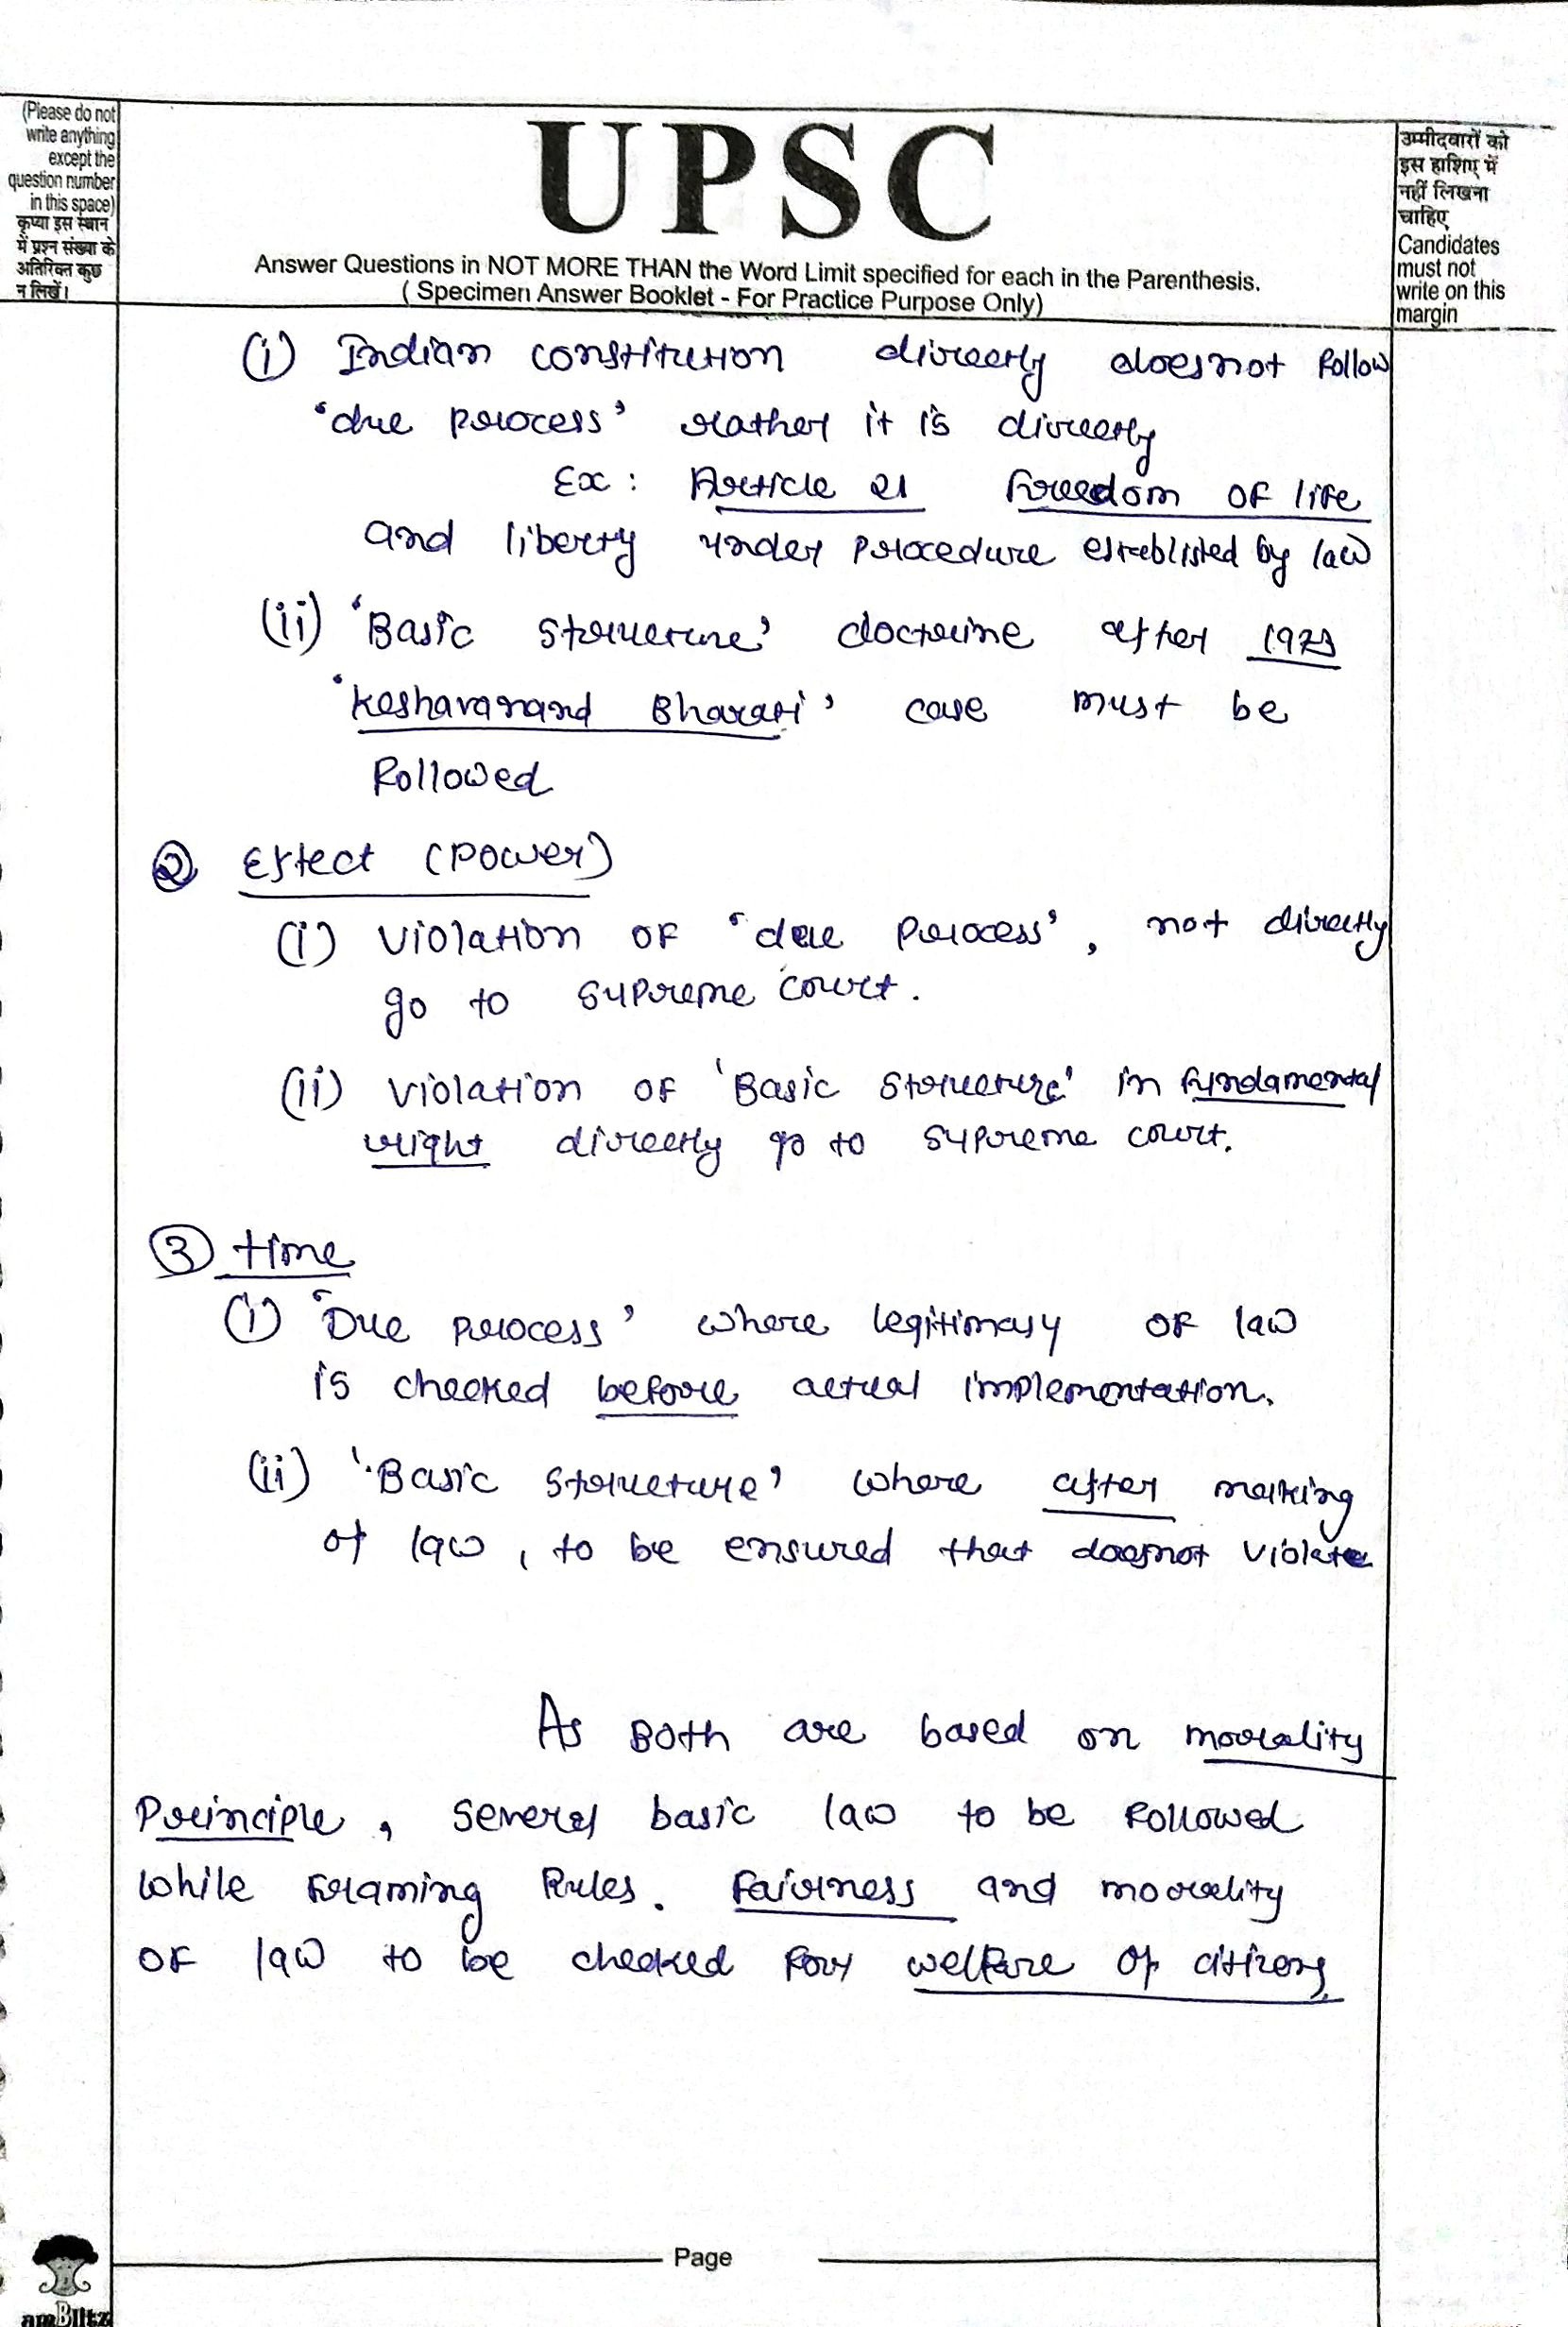 (Please do not
write anything
except the
question number
in this space)
कृप्या इस स्थान
में प्रश्न संख्या के
अतिरिक्त कुछ
न लिखें।
UPSC
Answer Questions in NOT MORE THAN the Word Limit specified for each in the Parenthesis.
( Specimen Answer Booklet - For Practice Purpose Only)
उम्मीदवारों को
इस हाशिए में
नहीं लिखना
चाहिए
Candidates
must not
write on this
margin
(i) Indian constitution directly doesnot follow
'due process' rather it is directly
Ex : Article 21 freedom of life
and liberty under procedure established by law
(ii) 'Basic structure' doctrine after
'Keshavanand Bharati' case must be
followed
② Effect (power)
(i) violation of 'due process', not directly
go to supreme court.
(ii) violation of 'Basic structure' in fundamental
right directly go to supreme court.
③ time
(i) 'Due process' where legitimasy of law
is checked before actual implementation.
(ii) 'Basic structure' where after making
of law, to be ensured that doesnot violate
As Both are based on morality
Principle, several basic law to be followed
while framing Rules. fairness and morality
of law to be checked for welfare of citizens.
Page
amBlitz